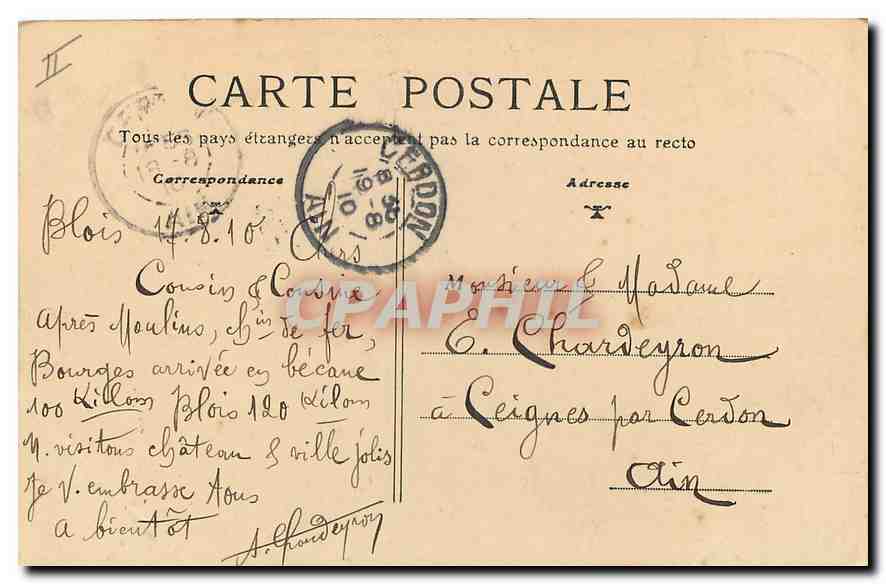 II
CARTE POSTALE
Tous les pays étrangers n'acceptent pas la correspondance au recto
Correspondance
Adresse
CERDON
8 35
19 -8
10
AIN
Blois 17.8.10 Chers
Cousin & Cousine
après Moulins, chin de fer,
Bourges arrivée en bécane
100 Killom Blois 120 Kilom
N. visitons château & ville jolis
Je V. embrasse Tous
a bientôt
A. Chardeyron
Monsieur & Madame
E. Chardeyron
à Ceignes par Cerdon
Ain
CPAPHIL